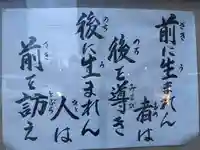 前に生まれん
者は
後を導き
後に生まれん
人は
前を訪え